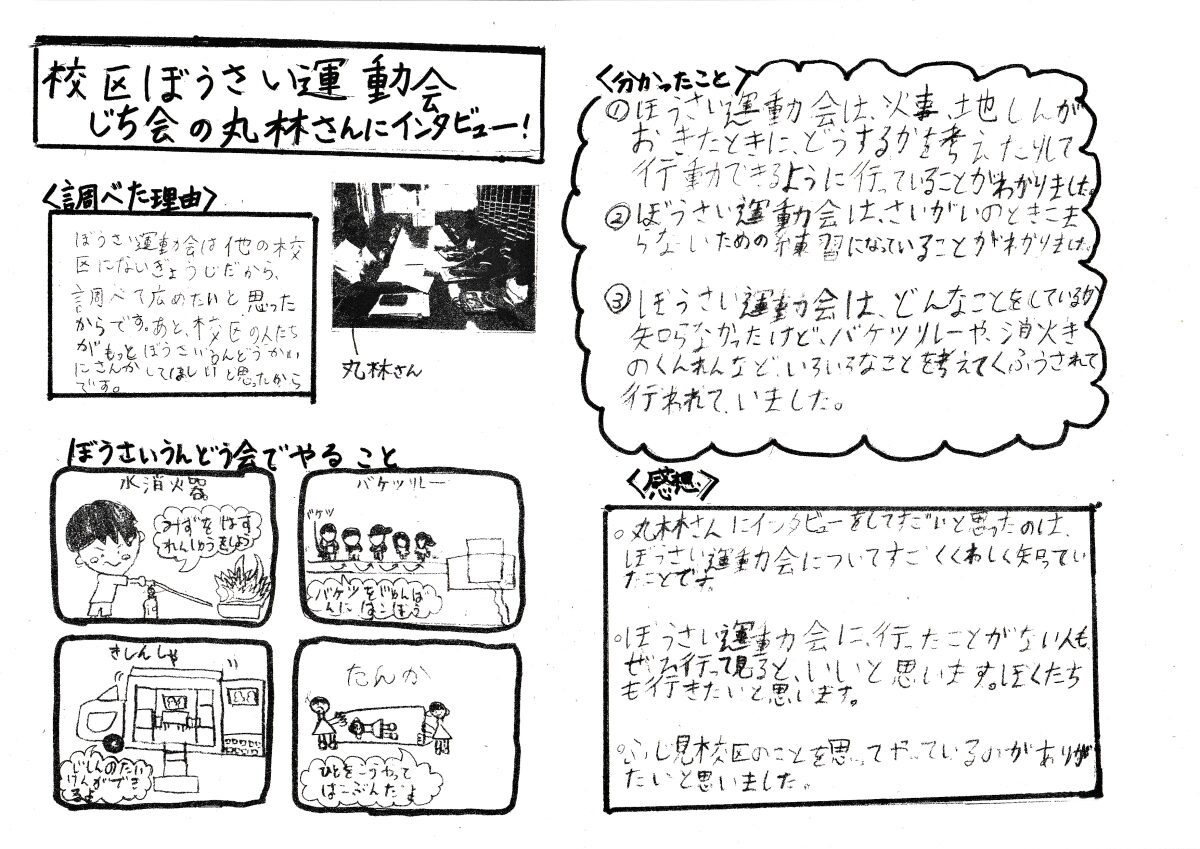 校区ぼうさい運動会
じち会の丸林さんにインタビュー!
<調べた理由>
ぼうさい運動会は他の校
区にないぎょうじだから、
調べて広めたいと思った
からです。あと、校区の人たち
がもっとぼうさいうんどうかい
にさんかしてほしいと思ったから
です。
丸林さん
ぼうさいうんどう会でやること
水消火器
みずをけす
れんしゅうをしよう
バケツリレー
バケツ
バケツをじゅんば
んにはこぼう
きしんしゃ
じしんのたい
けんができ
るよ
たんか
ひとをこうやって
はこぶんだよ
<分かったこと>
①ぼうさい運動会は、火事、地しんが
おきたときに、どうするかを考えたりして
行動できるように行っていることがわかりました。
②ぼうさい運動会は、さいがいのときこま
らないための練習になっていることがわかりました。
③ぼうさい運動会は、どんなことをしているか
知らなかったけど、バケツリレーや、消火き
のくんれんなど、いろいろなことを考えてくふうされて
行われて、いました。
<感想>
○丸林さんにインタビューをしてすごいと思ったのは、
ぼうさい運動会についてすごくくわしく知ってい
たことです。
○ぼうさい運動会に、行ったことがない人も、
ぜひ行って見ると、いいと思います。ぼくたち
も行きたいと思います。
○ふじ見校区のことを思ってやっているのがありが
たいと思いました。